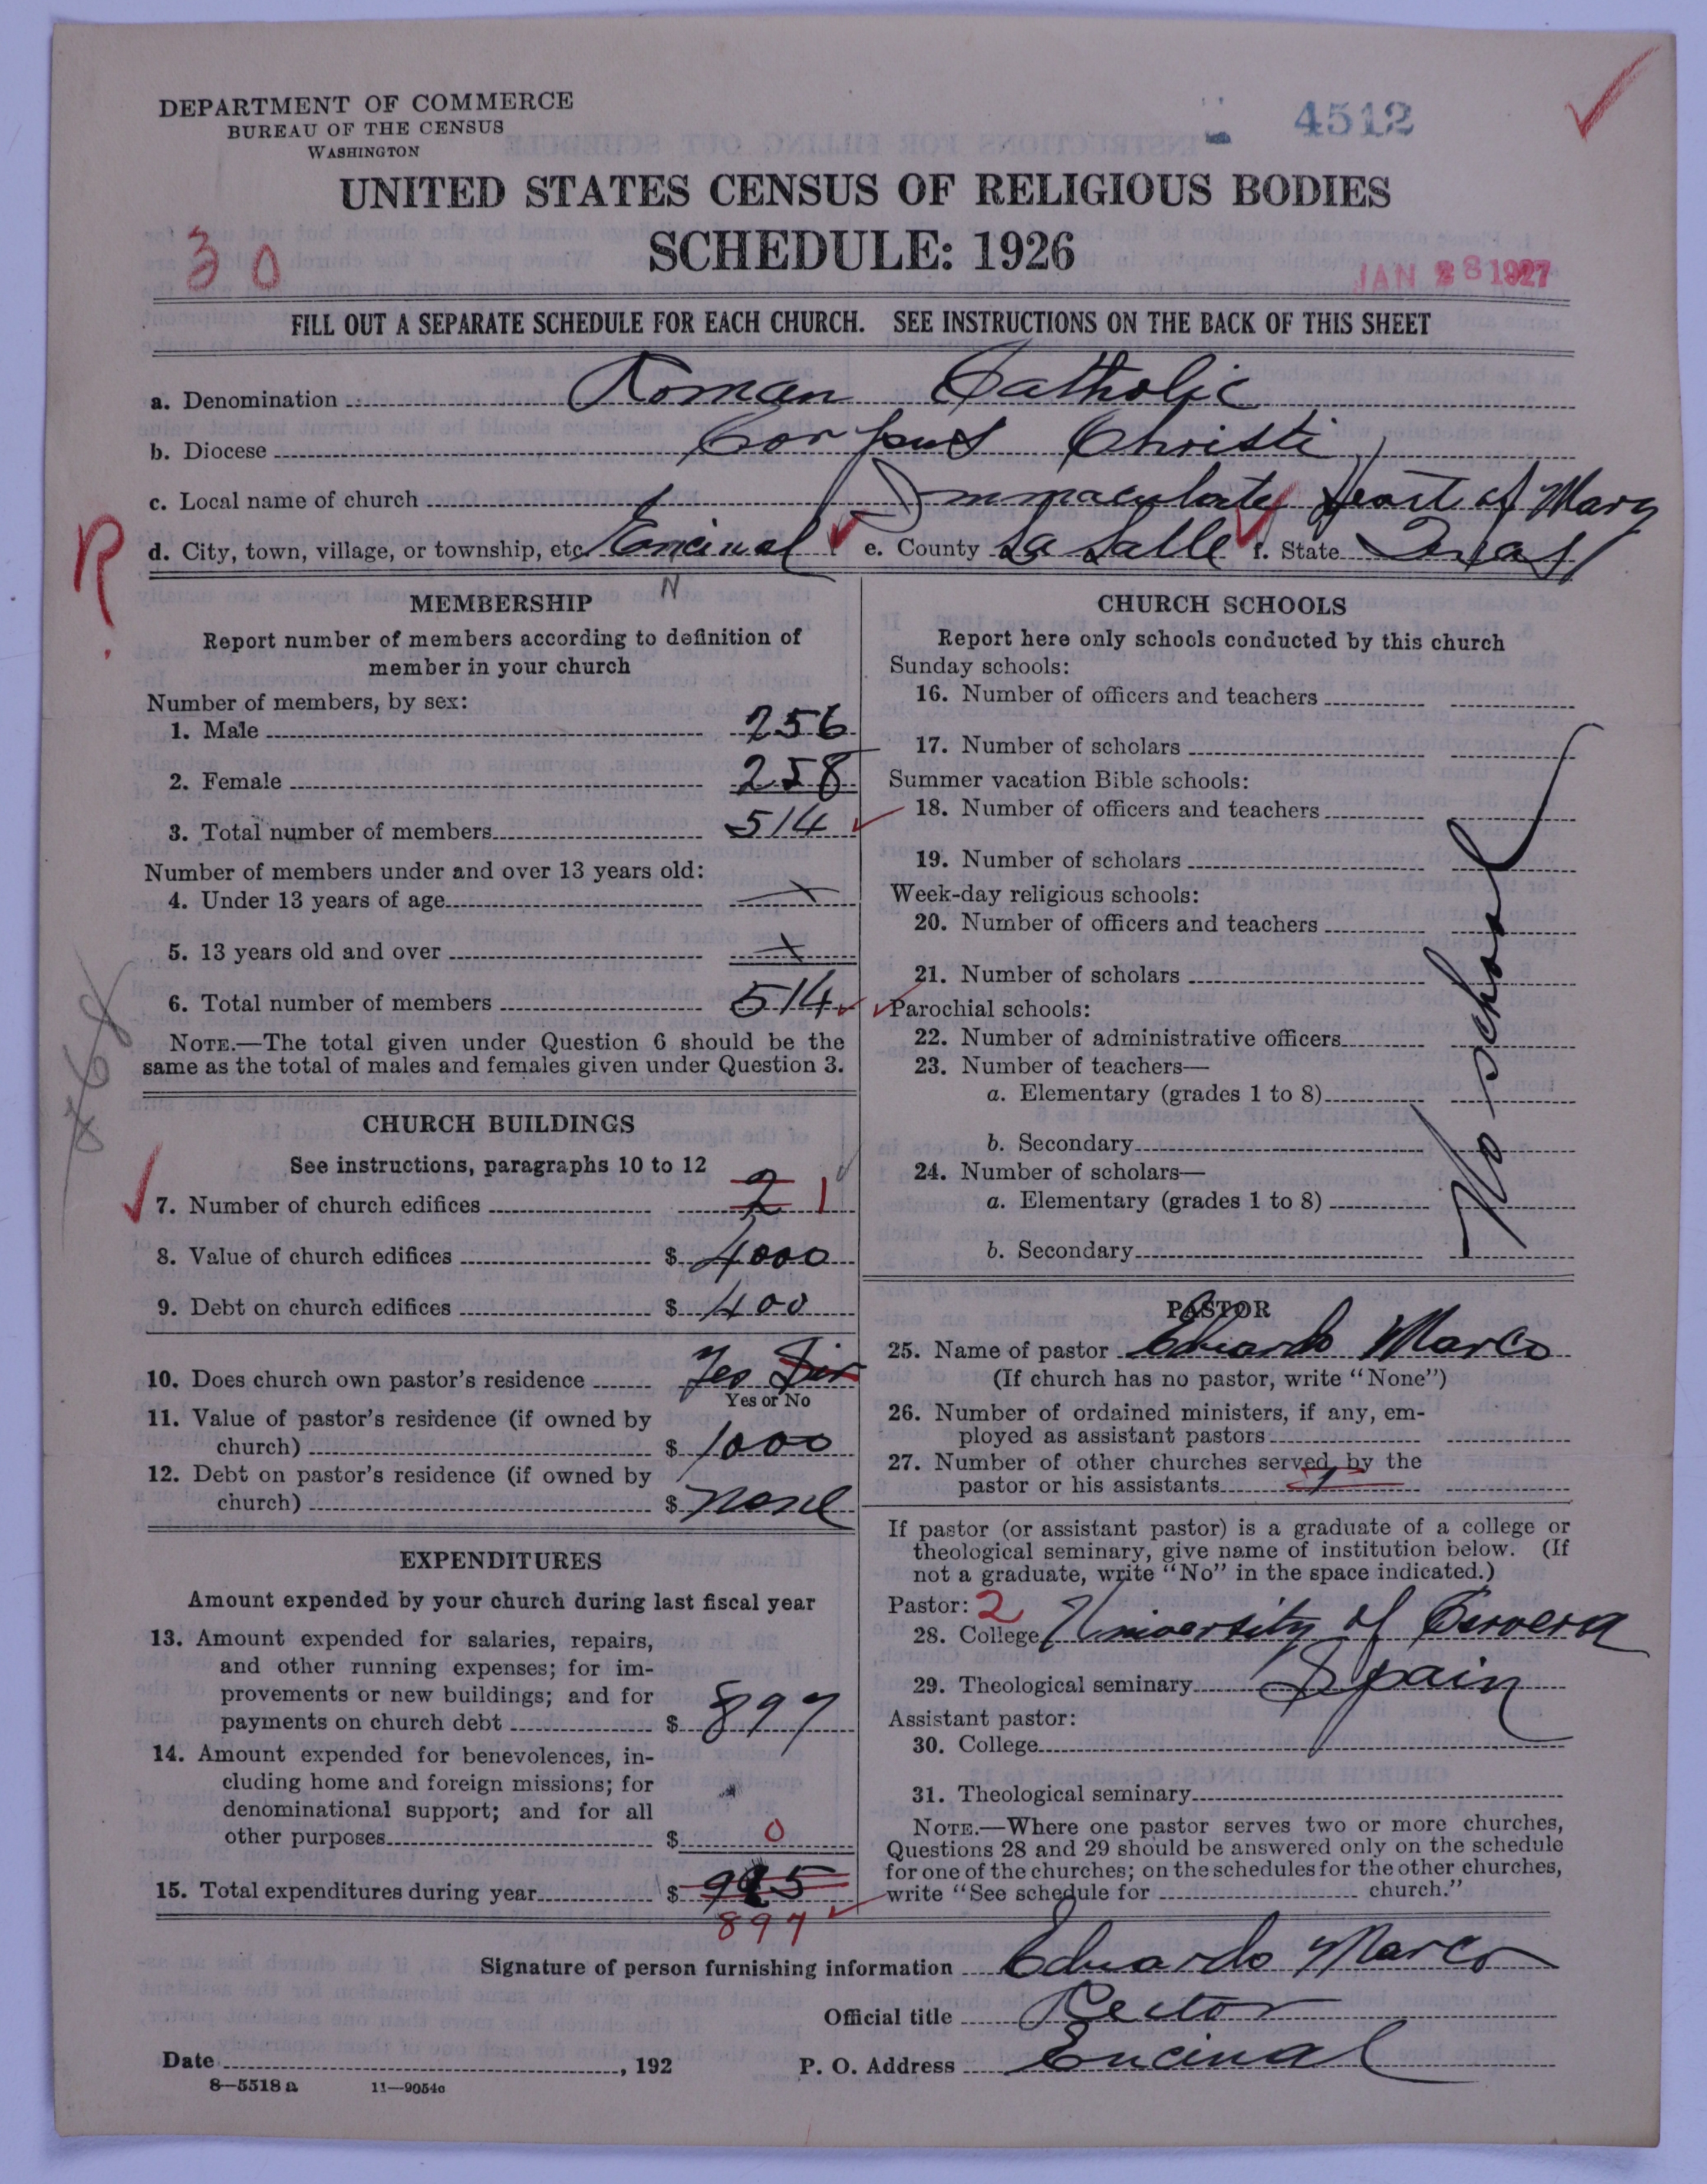 DEPARTMENT OF COMMERCE
BUREAU OF THE CENSUS
WASHINGTON
4512
UNITED STATES CENSUS OF RELIGIOUS BODIES
SCHEDULE: 1926
30
JAN 28 1927
FILL OUT A SEPARATE SCHEDULE FOR EACH CHURCH. SEE INSTRUCTIONS ON THE BACK OF THIS SHEET
a. Denomination Roman Catholic
b. Diocese Corpus Christi
c. Local name of church Immaculate Heart of Mary
R.
d. City, town, village, or township, etc. Encinal e. County La Salle f. State Texas
N
MEMBERSHIP
Report number of members according to definition of
member in your church
Number of members, by sex:
1. Male 256
2. Female 258
3. Total number of members 514
Number of members under and over 13 years old:
4. Under 13 years of age x
5. 13 years old and over x
6. Total number of members 514
NOTE.—The total given under Question 6 should be the
same as the total of males and females given under Question 3.
CHURCH BUILDINGS
See instructions, paragraphs 10 to 12
7. Number of church edifices 2 1
8. Value of church edifices $ 4000
9. Debt on church edifices $ 400
10. Does church own pastor's residence Yes Sir
Yes or No
11. Value of pastor's residence (if owned by
church) $ 1000
12. Debt on pastor's residence (if owned by
church) $ none
EXPENDITURES
Amount expended by your church during last fiscal year
13. Amount expended for salaries, repairs,
and other running expenses; for im-
provements or new buildings; and for
payments on church debt $ 897
14. Amount expended for benevolences, in-
cluding home and foreign missions; for
denominational support; and for all
other purposes $ 0
15. Total expenditures during year $
897
CHURCH SCHOOLS
Report here only schools conducted by this church
Sunday schools:
16. Number of officers and teachers
17. Number of scholars
Summer vacation Bible schools:
18. Number of officers and teachers
19. Number of scholars
Week-day religious schools:
20. Number of officers and teachers
21. Number of scholars
Parochial schools:
22. Number of administrative officers
23. Number of teachers—
a. Elementary (grades 1 to 8)
b. Secondary
24. Number of scholars—
a. Elementary (grades 1 to 8)
b. Secondary
No school
PASTOR
25. Name of pastor Eduardo Marco
(If church has no pastor, write "None")
26. Number of ordained ministers, if any, em-
ployed as assistant pastors
27. Number of other churches served by the
pastor or his assistants 1
If pastor (or assistant pastor) is a graduate of a college or
theological seminary, give name of institution below. (If
not a graduate, write "No" in the space indicated.)
Pastor: 2
28. College University of Cervera
29. Theological seminary Spain
Assistant pastor:
30. College
31. Theological seminary
NOTE.—Where one pastor serves two or more churches,
Questions 28 and 29 should be answered only on the schedule
for one of the churches; on the schedules for the other churches,
write "See schedule for church."
Signature of person furnishing information Eduardo Marco
Official title Rector
Date , 192 P. O. Address Encinal
8—5518 a 11—9054c